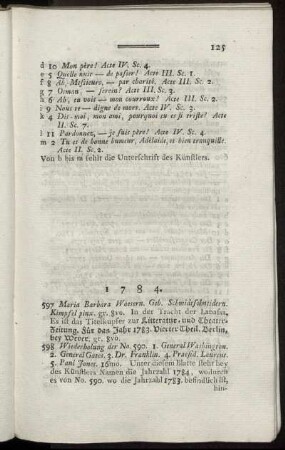 125
d 10 Mon père! Acte IV. Sc. 4.
e 5 Quelle nuit — de passer! Acte III. Sc. 1.
f 8 Ah, Messieurs, — par charité, Acte III. Sc.
g 7 Osman, — serein? Acte III. Sc. 3.
h 6 Ah, tu vois — mon courroux? Acte III. Sc. 2.
i 9 Nous et — digne de mere. Acte IV. Sc. 3.
k 4 Dis-moi, mon ami, pourquoi tu es si triste? Acte
II. Sc. 7.
l 11 Pardonnez, — je suis père? Acte IV. Sc. 4
m 2 Tu es de bonne humeur, Adelaide, et bien tranquille.
Acte II. Sc. 2.
Von b bis m fehlt die Unterschrift des Künstlers.
1784.
597 Maria Barbara Waesern. Geb. Schmidtschneidern.
Kimpfel pinx. gr. 8vo. In der Tracht der Lanassa.
Es ist das Titelkupfer zur Litteratur- und Theater-
Zeitung. Für das Jahr 1783. Vierter Theil. Berlin,
bey Wever. gr. 8vo.
598 Wiederholung der No. 590. 1. General Washington.
2. General Gates. 3. Dr. Franklin. 4. Praesid. Laurens.
5. Paul Jones. 16mo. Unter diesem Blatte steht bey
des Künstlers Namen die Jahrzahl 1784, wodurch
es von No. 590. wo die Jahrzahl 1783. befindlich ist,
hin-